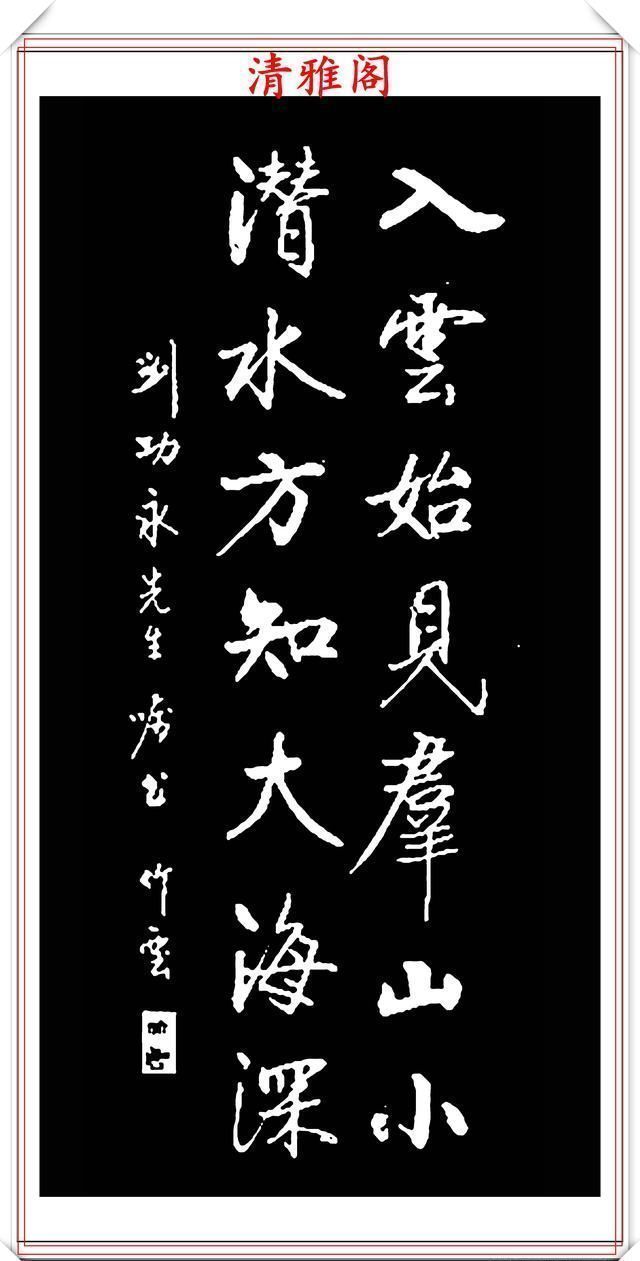 清雅阁
入雲始見羣山小
潜水方知大海深
劉功永先生嘱书 竹雲